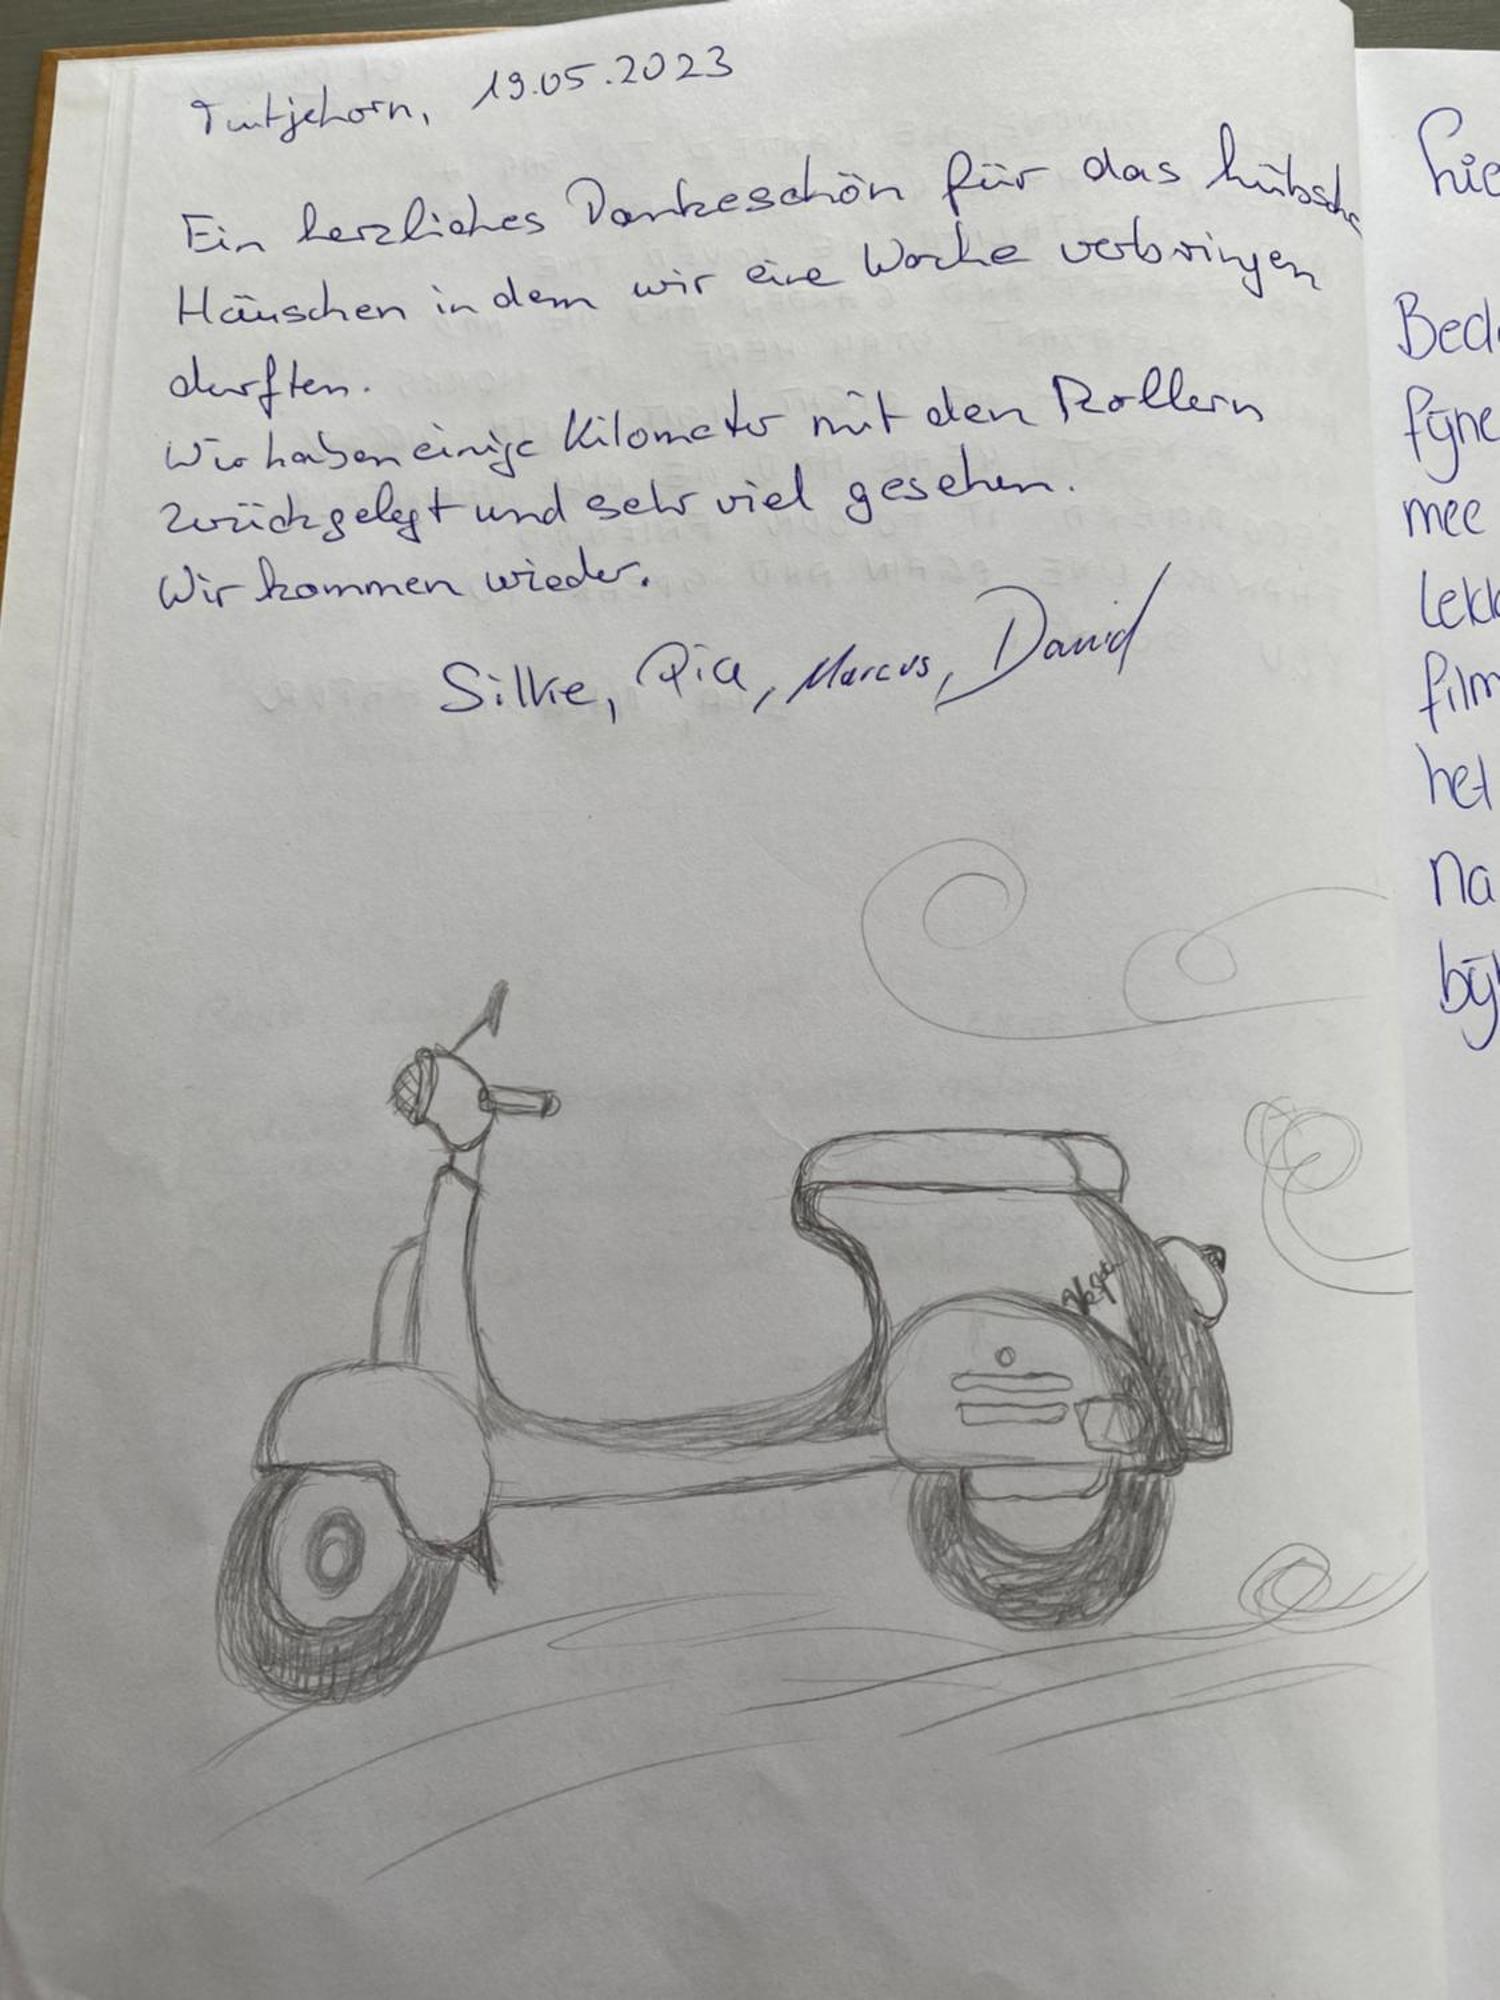 Tuitjehorn, 19.05.2023
Ein herzliches Dankeschön für das hübsche
Häuschen in dem wir eine Woche verbringen
durften.
Wir haben einige Kilometer mit den Rollern
zurückgelegt und sehr viel gesehen.
Wir kommen wieder.
Silke, Pia, Marcus, David
Vespa
hie
Bed
fijne
mee
lekk
film
het
na
bij